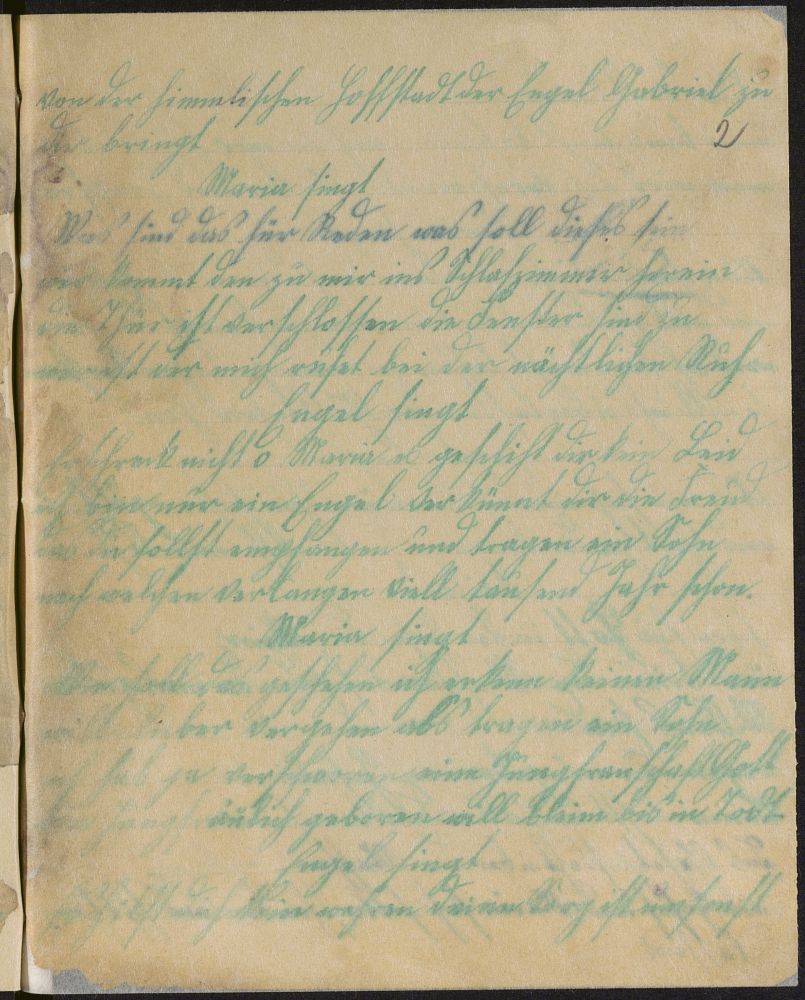 von der himmlischen Hoffstadt der Engel Gabriel zu
2
dir bringt
Maria singt
Was sind das für Reden was soll dieses sein
wer kommt den zu mir ins Schlafzimmer herein
die Thür ist verschlossen die Fenster sind zu
wer ist der mich rufet bei der nächtlichen Ruh
Engel singt
Erschreck nicht o Maria es geschiht dir kein Leid
ich bin nur ein Engel der künnt dir die Freud
das du sollst empfangen und tragen ein Sohn
nach welchen verlangen viell tausend Jahr schon.
Maria singt
Wie soll das geschehen ich erkenn keinen Mann
will lieber vergehen als tragen ein Sohn
ich hab ja verschworen eine Jungfrauschaft Gott
jungfräulich geboren will bleim bis in Todt
Engel singt
kein wahren deine Sorg ist umsonst